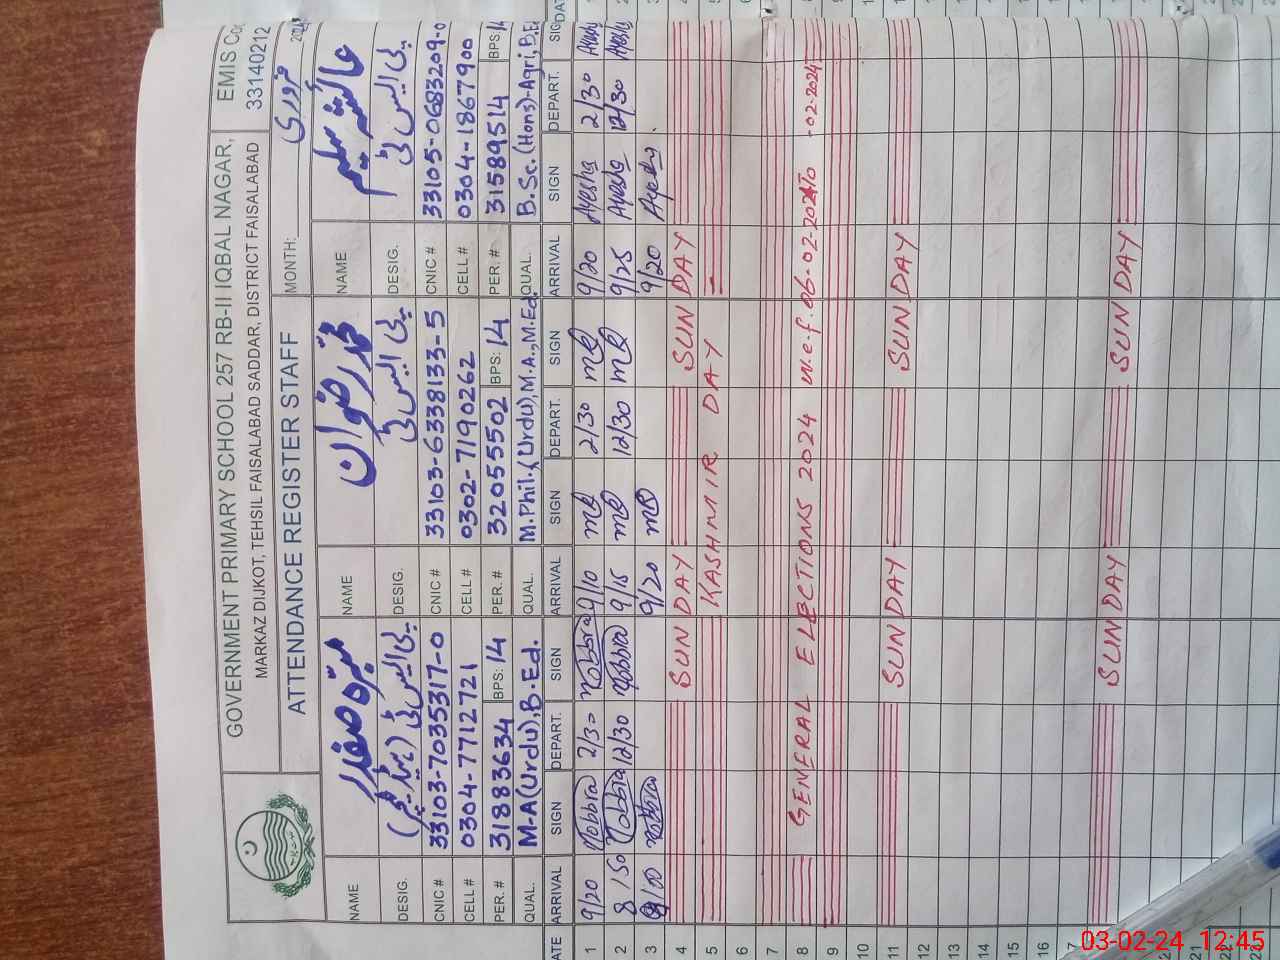 GOVERNMENT PRIMARY SCHOOL 257 RB-II IQBAL NAGAR,
MARKAZ DIJKOT, TEHSIL FAISALABAD SADDAR, DISTRICT FAISALABAD
EMIS Co
33140212
ATTENDANCE REGISTER STAFF
MONTH: فروری
NAME NAME محمد رضوان NAME عائشہ سلیم
DESIG. پی ایس ٹی DESIG. پی ایس ٹی DESIG. پی ایس ٹی
CNIC # 33103-7035317-0 CNIC # 33103-6338133-5 CNIC # 33105-0683209-0
CELL # 0304-7712721 CELL # 0302-7190262 CELL # 0304-1867900
PER. # 31883634 BPS: 14 PER. # 32055502 BPS: 14 PER. # 31589514 BPS: 14
QUAL. M-A(Urdu),B.Ed. QUAL. M.Phil.(Urdu),M.A.,M.Ed. QUAL. B.Sc.(Hons)-Agri,B.Ed
DATE ARRIVAL SIGN DEPART. SIGN ARRIVAL SIGN DEPART. SIGN ARRIVAL SIGN DEPART. SIG
1 9/20 2/30 9/10 2/30 9/20 Ayesha 2/30
2 8/50 12/30 9/15 12/30 9/25 Ayesha 12/30
3 9/00 9/20 9/20
4 SUN DAY SUN DAY
5 KASHMIR DAY
6
7
8 GENERAL ELECTIONS 2024 w.e.f. 06-02-2024 To -02-2024
9
10
11 SUN DAY SUN DAY
12
13
14
15
16
SUN DAY SUN DAY
03-02-24 12:45